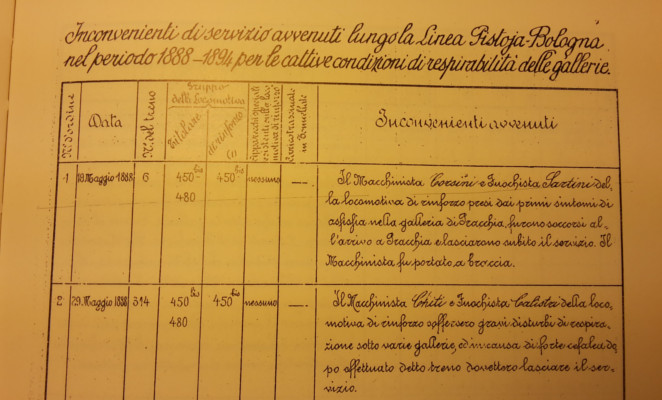 Inconvenienti di servizio avvenuti lungo la Linea Pistoja-Bologna
nel periodo 1888-1894 per le cattive condizioni di respirabilità delle gallerie.
N. d'ordine
Data
N. del treno
Gruppo
della locomotiva
Titolare
di rinforzo
(1)
Apparecchi speciali
esistenti sulle loco-
motive di rinforzo
in Tonnellate
Inconvenienti avvenuti
1
18 Maggio 1888
6
450 bis
480
450 bis
nessuno
—
Il Macchinista Corsini e Fuochista Sartini del-
la locomotiva di rinforzo presi dai primi sintomi di
asfissia nella galleria di Pracchia, furono soccorsi al-
l'arrivo a Pracchia e lasciarono subito il servizio. Il
Macchinista fu portato a braccia.
2
29 Maggio 1888
314
450 bis
480
450 bis
nessuno
—
Il Macchinista Chiti e Fuochista Calistri della loco-
motiva di rinforzo soffersero gravi disturbi di respira-
zione sotto varie gallerie, ed in causa di forte cefalea do-
po effettuato detto treno dovettero lasciare il ser-
vizio.